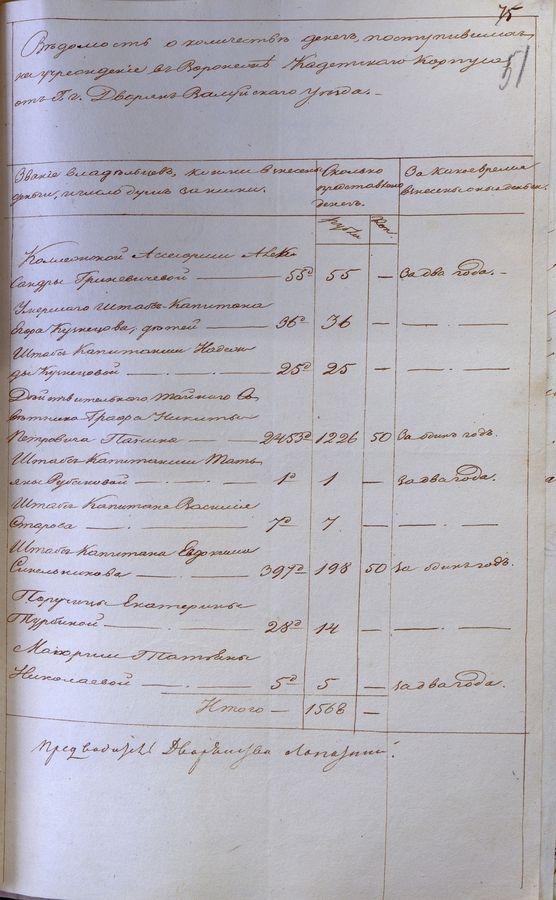 75
51
Ведомость о количестве денег, поступившихъ
на учреждение въ Воронеже Кадетскаго Корпуса
отъ Г. г. Дворянъ Валуйскаго уезда.
Званіе владельцевъ, кои внесены
деньги, и число душъ за ними.
Сколько
представлено
денегъ.
За какое время
внесены оныя деньги.
Рубли
Коп.
Коллежской Ассесорши Алек
сандры Гриневичевой — 55 55 — За два года.
Умершаго Штабсъ-Капитана
Егора Кузнецова, детей — 36 36 —
Штабсъ Капитанши Надеж
ды Кузнецовой — 25 25 —
Действительнаго Тайнаго Со
ветника Графа Никиты
Петровича Панина — 2453 1226 50 За одинъ годъ.
Штабсъ Капитанши Тать
яны — 1 1 — за два года.
Штабсъ Капитана Василія
Старова — 7 7 —
Штабсъ Капитана Евдокима
Синельникова — 397 198 50 за одинъ годъ.
Поручицы Екатерины
Турбиной — 28 14 —
Маіорши Татьяны
Николаевой — 5 5 — за два года.
Итого — 1568 —
Предводитель Дворянства